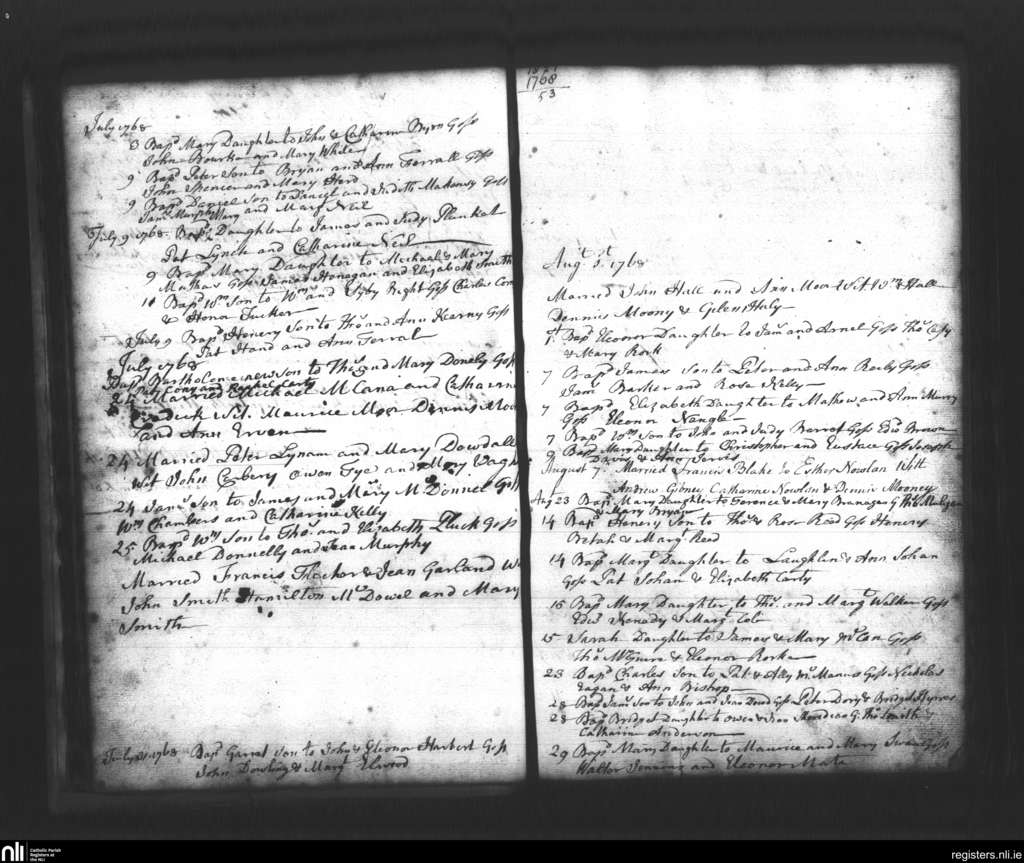 July 1768
3 Bapd Mary Daughter to John & Catharine Byrn Goss
John Bourke and Mary White
9 Bapd Peter Son to Bryan and Ann Farrall Goss
John Spencer and Mary Herd
9 Bapd Daniel Son to Daniel and Judith Mahony Goss
Jams Murphy and Mary Neil
July 9 1768 Bapd Mary Daughter to James and Judy Plunkat
Pat Lynch and Catharine Neil
9 Bapd Mary Daughter to Michael & Mary
Goss James Honagan and Elizabeth Smith
10 Bapd Wm Son to Wm and Right Goss Charles
& Hona Tucker
July 9 Bapd Henery Son to Thos and Ann Kearny Goss
Pat Hand and Ann Farral
July 1768
Bapd Bartholomew son to Thos and Mary Donely Goss
Pat Cony and Rachel Carty
24 Married Michael McCana and Catharine
Wit Maurice Dennis
and Ann Erven
24 Married Peter Lynam and Mary Dowdall
Wit John Owen Tye and Mary
24 Jams Son to James and Mary McDonnel Goss
Wm Chambers and Catharine Kelly
25 Bapd Wm Son to Thos and Elizabeth Pluck Goss
Michael Donnelly and Jean Murphy
Married Francis & Jean Garland W
John Smith Hamilton McDowel and Mary
Smith
July 31 1768 Bapd Garrat Son to John & Eleonor Harbert Goss
John Dowling & Margt Elwood
1768
53
Augst 5t 1768
Married John Hall and Ann Wit Wm Hall
Dennis Moony &
7 Bapd Eleonor Daughter to Jams and Goss Thos
& Mary Rork
7 Bapd James Son to Peter and Ann Goss
Jams Barker and Rose Kelly
7 Bapd Elizabeth Daughter to Mathew and Ann Murry
Goss Eleonor Nangle
7 Bapd Wm Son to Jno and Judy Goss Edwd Brown
9 Bapd Mary Daughter to Christopher and Eustace Goss Joseph
Davis & Ann Jarvis
August 7 Married Francis Blake to Esther Nowlan Witt
Andrew Gibney Catharine Nowlan & Dennis Mooney
Aug 23 Bapd Mary Daughter to Terence & Mary Branagan G Thos Mulligan
& Mary Bryan
14 Bapd Henery Son to Thos & Rose Reed Goss Henery
& Margt Reed
14 Bapd Margt Daughter to Laughlin & Ann Johan
Goss Pat Johan & Elizabeth Carty
15 Bapd Mary Daughter to Thos and Margt Walker Goss
Edwd Kenady & Margt
15 Sarah Daughter to James & Mary Goss
Thos McGuire & Eleonor Rorke
23 Bapd Charles Son to Pat & Ally McManus Goss Nicholas
Eagan & Ann Bishop
28 Bapd Jams Son to John and Jane Goss Peter & Bridget
28 Bapd Bridget Daughter to Owen & G Thos Smith
Catharine Anderson
29 Bapd Mary Daughter to Maurice and Mary Goss
Walter Jenings and Eleonor
nli
Catholic Parish
Registers at
the NLI
registers.nli.ie